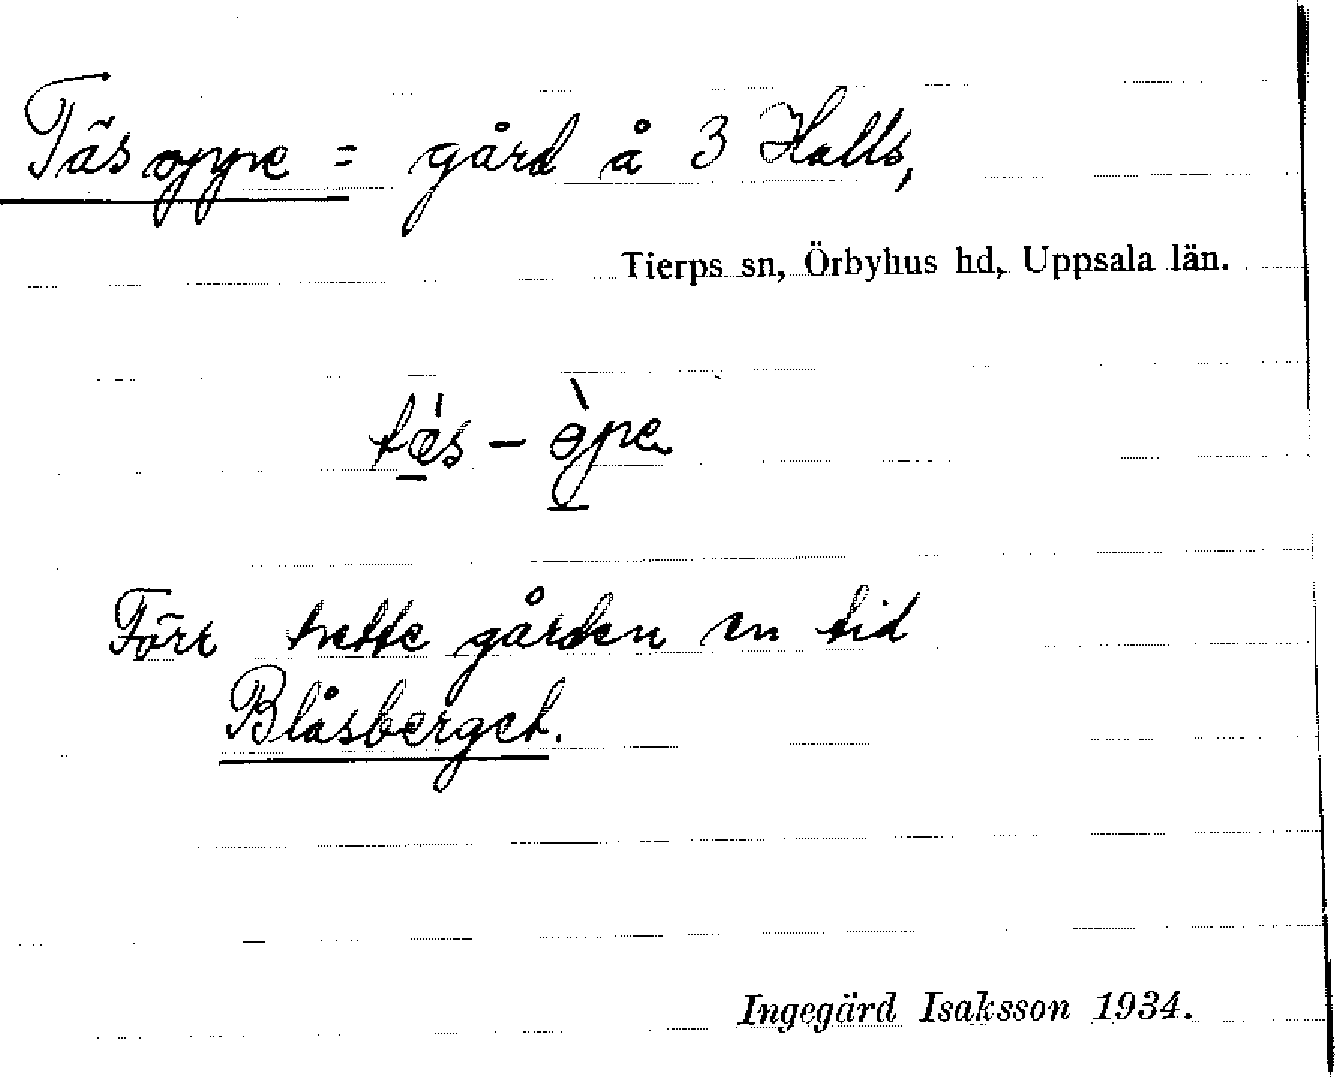 Täsoppe = gård å 3 Halls,
Tierps sn, Örbyhus hd, Uppsala län.
Förr hette gården en tid
Blåsberget.
Ingegärd Isaksson 1934.